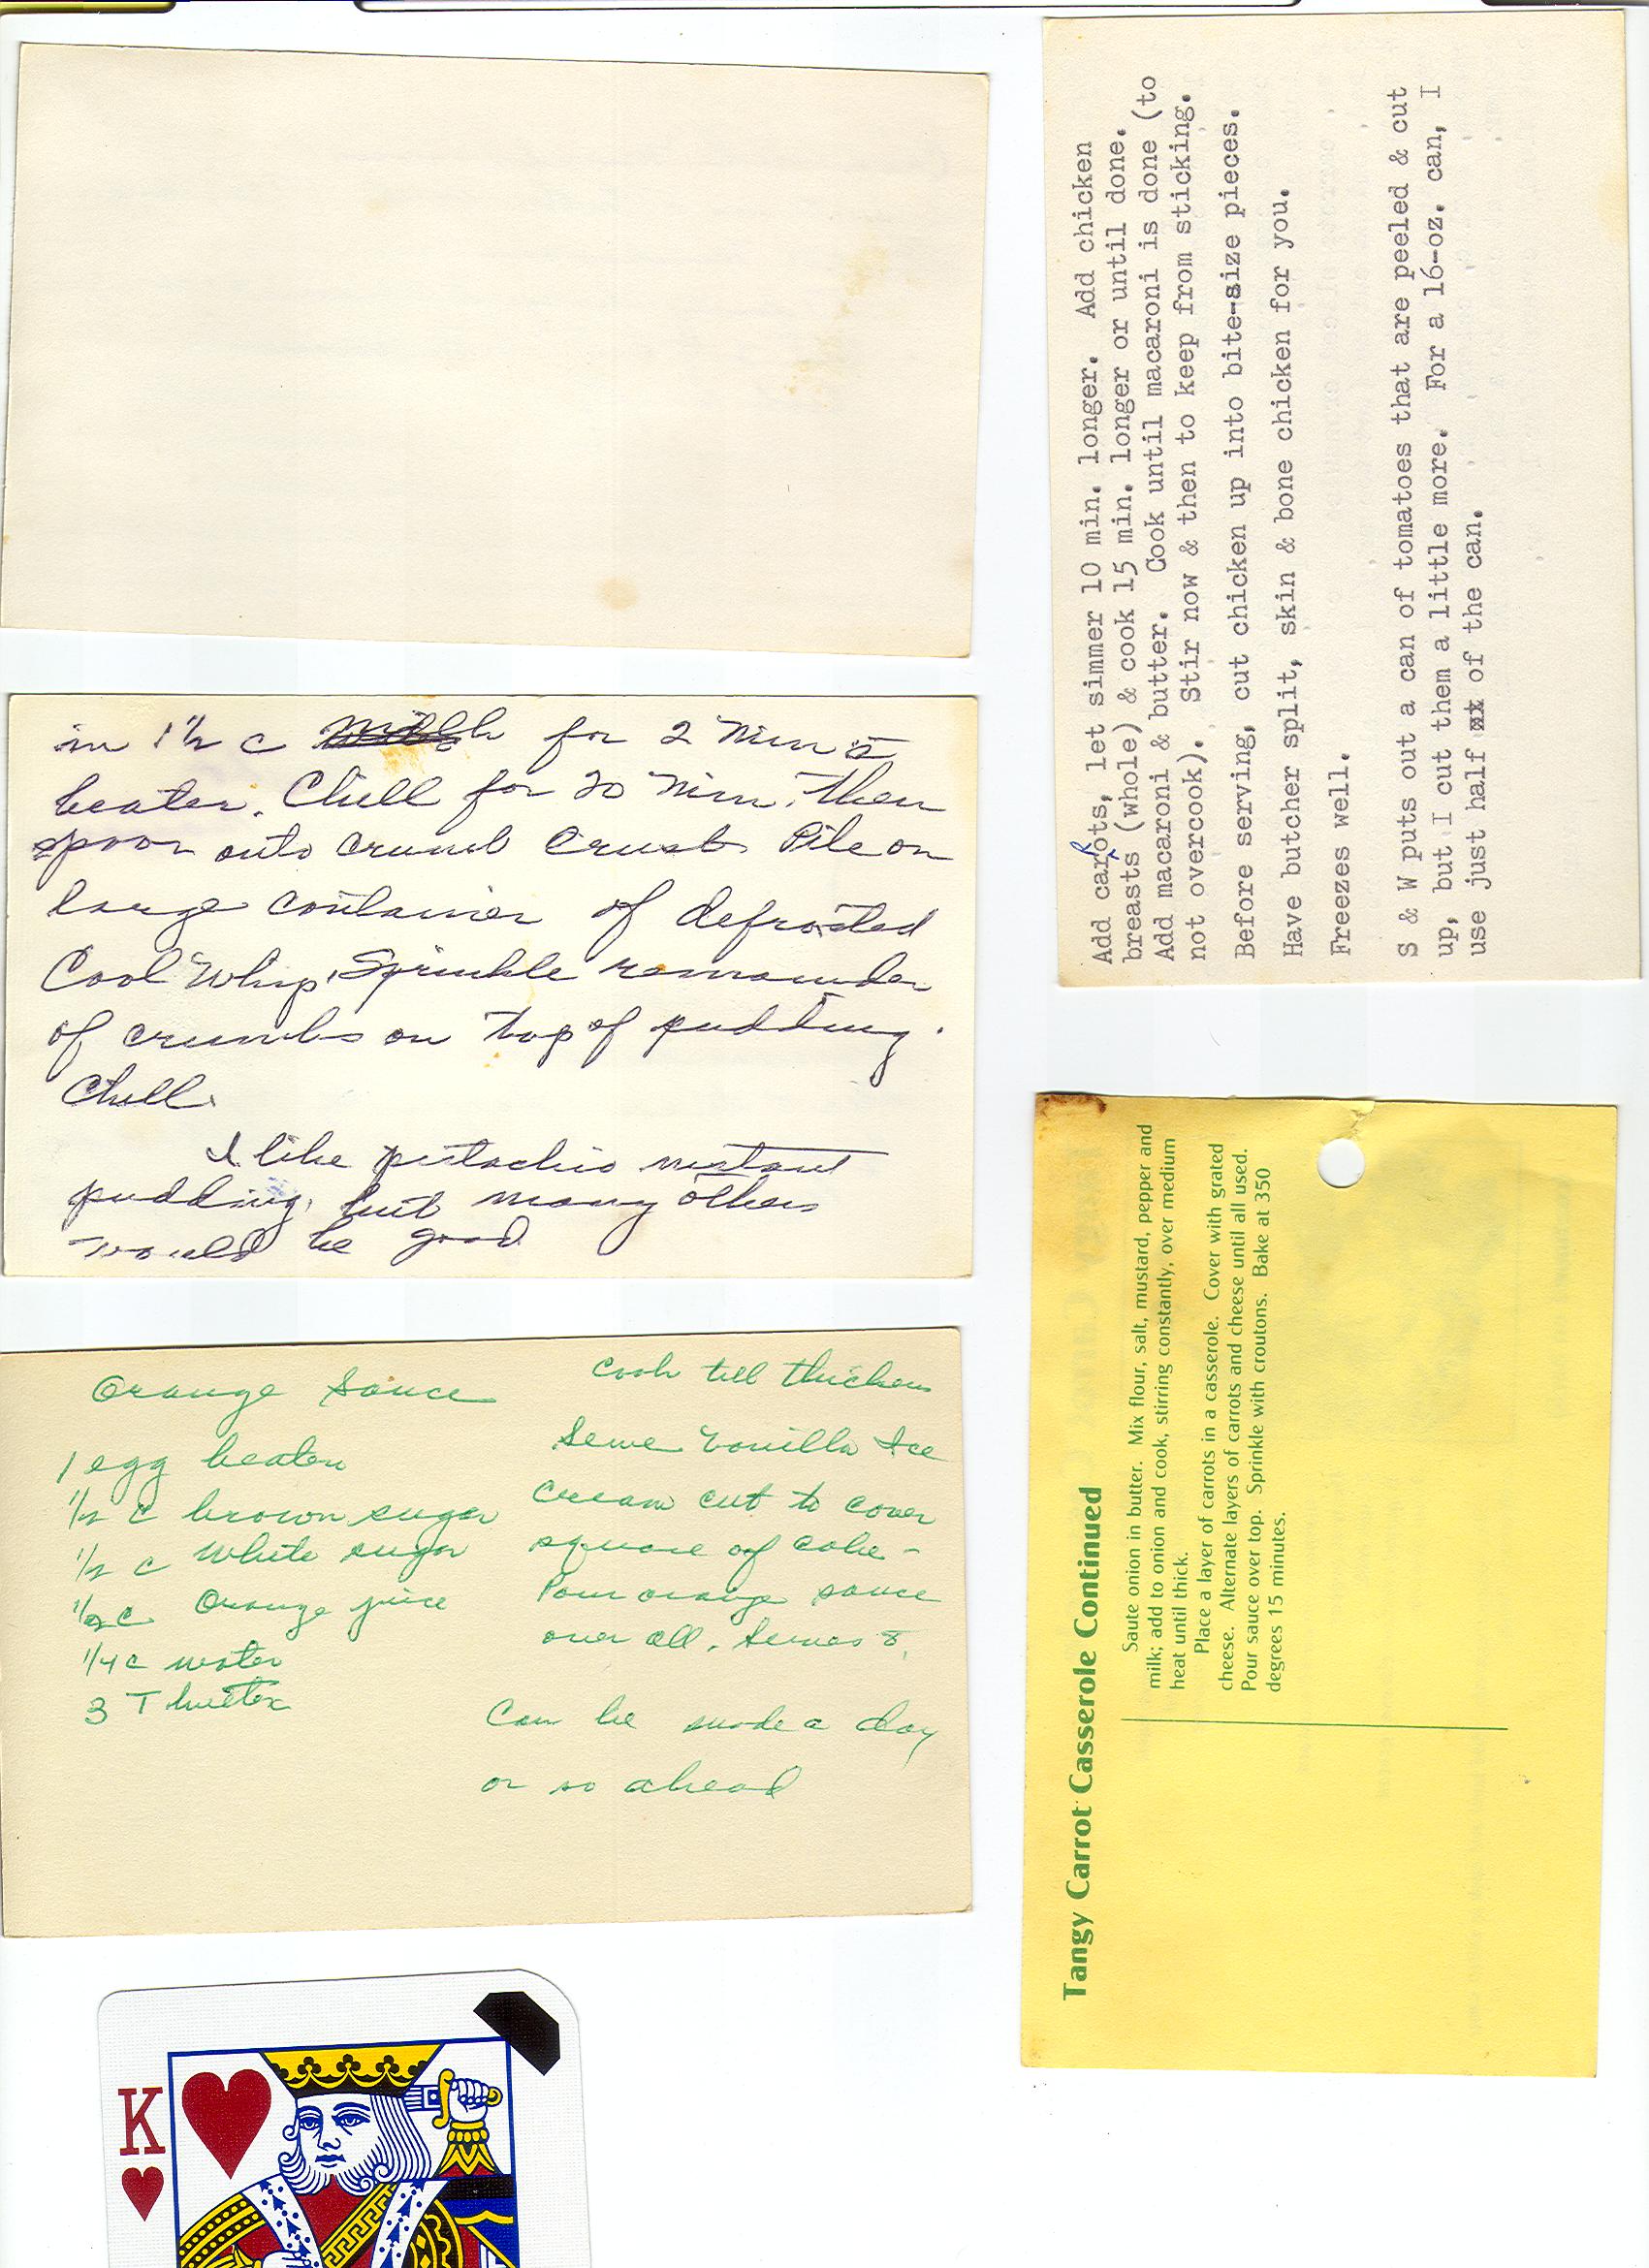 in 1 1/2 c milk for 2 min c̄
beater. Chill for 20 min. Then
spoon onto crumb crust. Pile on
large container of defrosted
Cool Whip. Sprinkle remainder
of crumbs on top of pudding.
Chill.
I like pistachio instant
pudding, but many others
would be good
Orange Sauce
1 egg beaten
1/2 C brown sugar
1/2 c White sugar
1/2 c Orange juice
1/4 c water
3 T butter
Cook till thickens
Serve Vanilla Ice
Cream cut to cover
square of cake -
Pour orange sauce
over all. Serves 8.
Can be made a day
or so ahead
K
Add carrots, let simmer 10 min. longer. Add chicken
breasts (whole) & cook 15 min. longer or until done.
Add macaroni & butter. Cook until macaroni is done (to
not overcook). Stir now & then to keep from sticking.
Before serving, cut chicken up into bite-size pieces.
Have butcher split, skin & bone chicken for you.
Freezes well.
S & W puts out a can of tomatoes that are peeled & cut
up, but I cut them a little more. For a 16-oz. can, I
use just half of the can.
Tangy Carrot Casserole Continued
Saute onion in butter. Mix flour, salt, mustard, pepper and
milk; add to onion and cook, stirring constantly, over medium
heat until thick.
Place a layer of carrots in a casserole. Cover with grated
cheese. Alternate layers of carrots and cheese until all used.
Pour sauce over top. Sprinkle with croutons. Bake at 350
degrees 15 minutes.